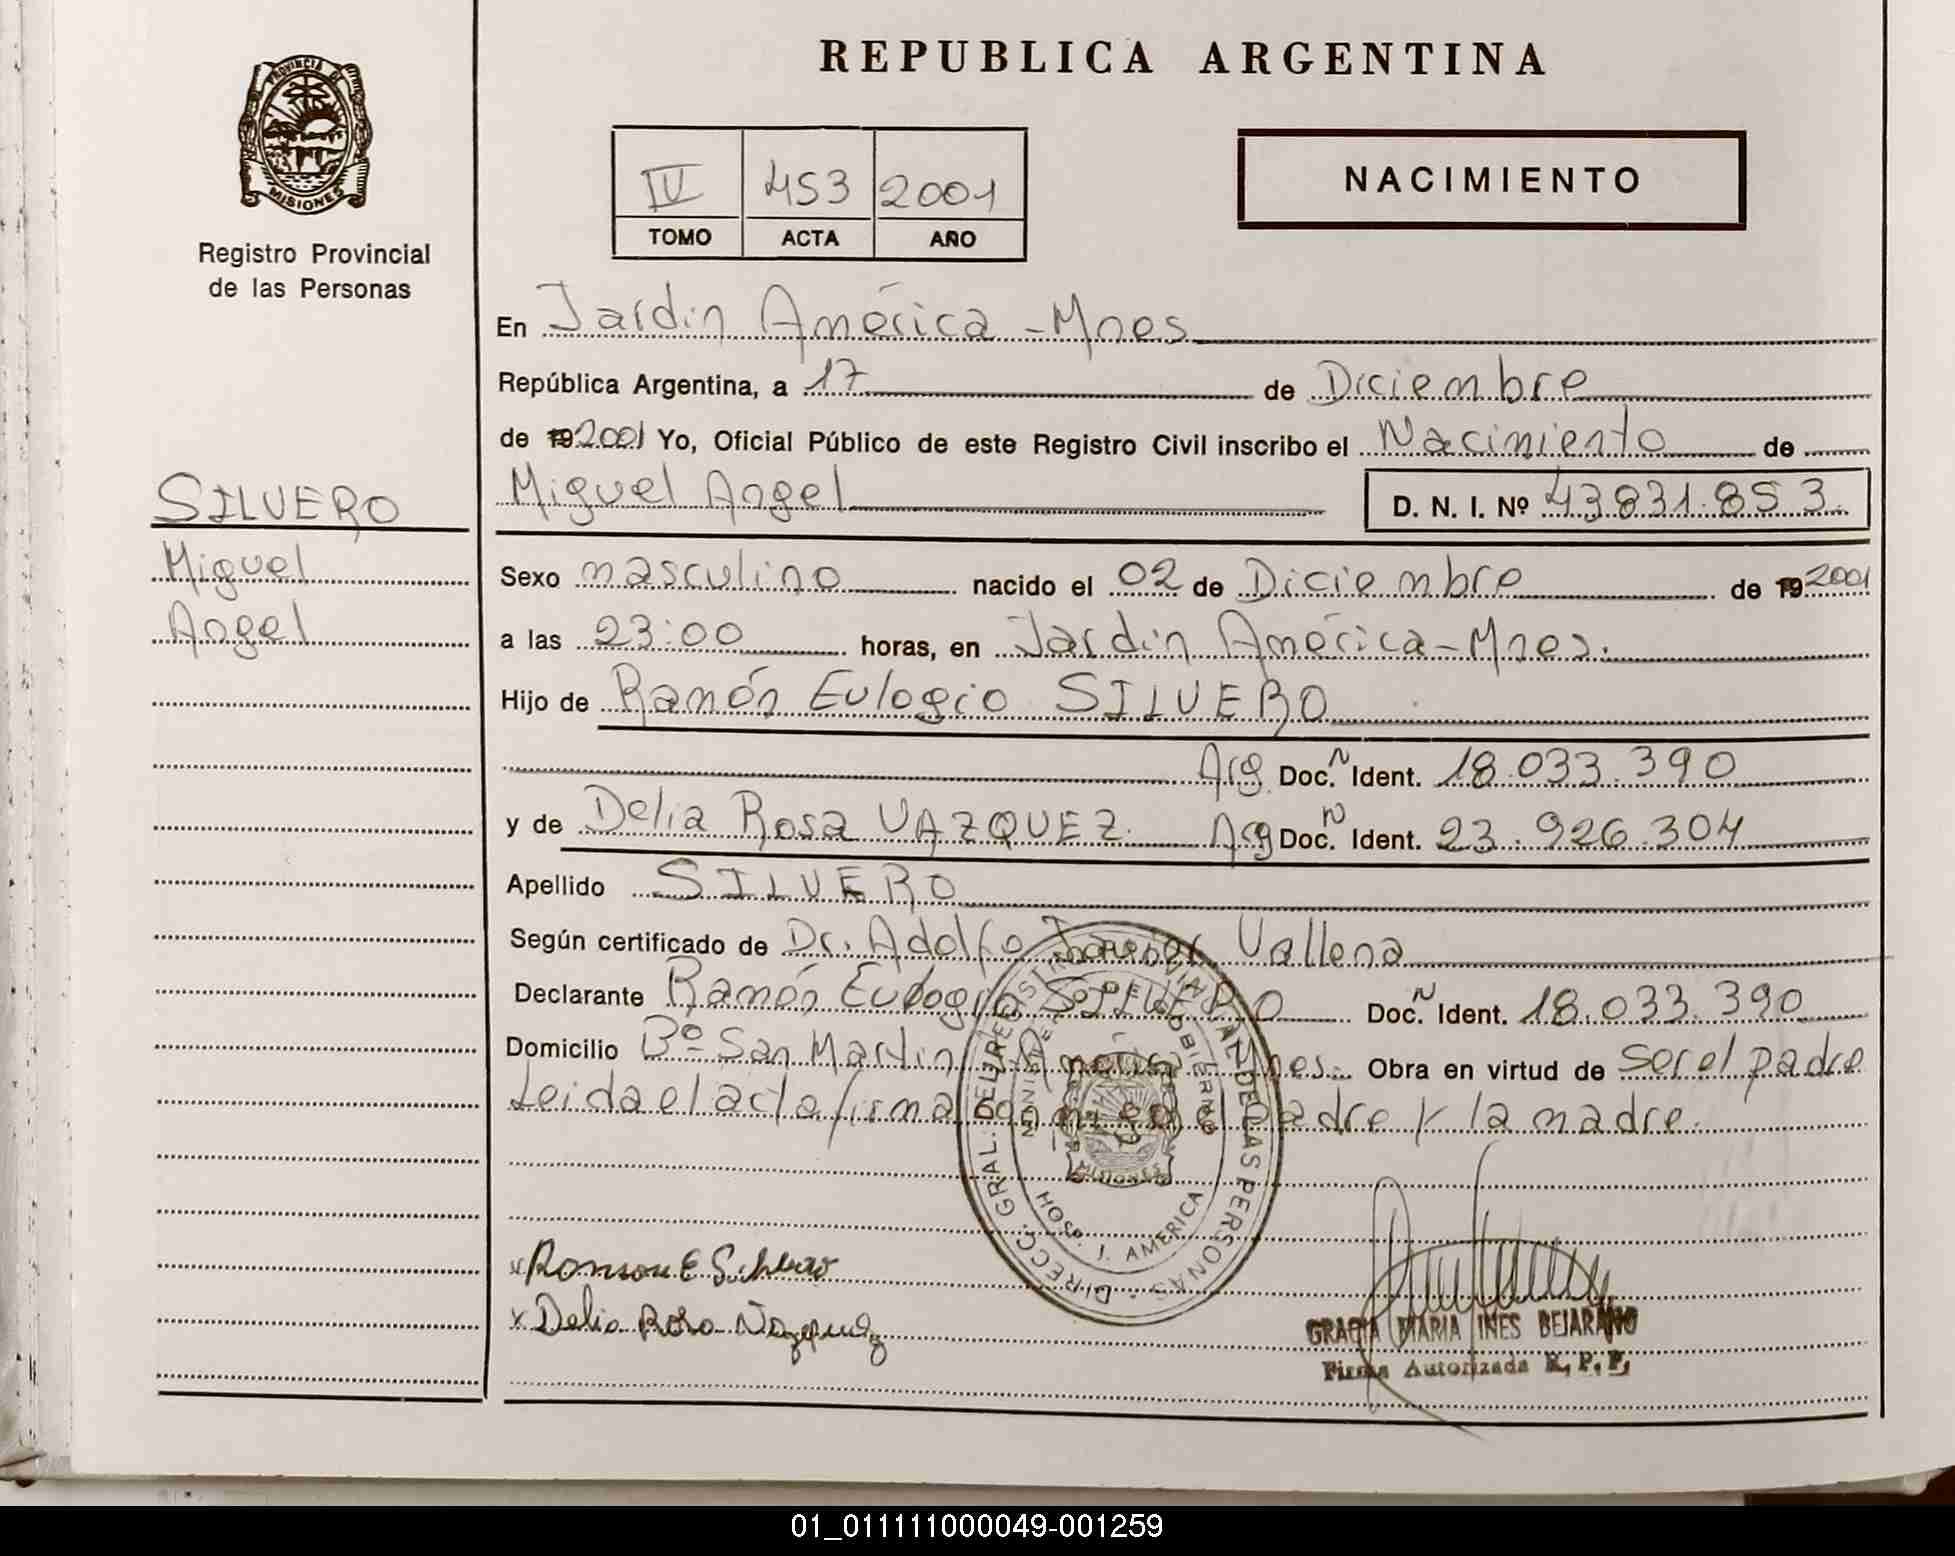 REPUBLICA ARGENTINA
PROVINCIA DE
MISIONES
Registro Provincial
de las Personas
IV 453 2001
TOMO ACTA AÑO
NACIMIENTO
En Jardín América - Mnes
República Argentina, a 17 de Diciembre
de 19 2001 Yo, Oficial Público de este Registro Civil inscribo el Nacimiento de
Miguel Angel D. N. I. Nº 43831.853.
SILVERO
Miguel
Angel
Sexo masculino nacido el 02 de Diciembre de 19 2001
a las 23:00 horas, en Jardín América - Mnes.
Hijo de Ramón Eulogio SILVERO
Arg Doc. N Ident. 18.033.390
y de Delia Rosa VAZQUEZ. Arg Doc. N Ident. 23.926.304
Apellido SILVERO
Según certificado de Dr. Adolfo Vallena
Declarante Ramón Eulogio SILVERO Doc. N Ident. 18.033.390
Domicilio Bº San Martin América Mnes. Obra en virtud de ser el padre
Leida el acta firma conmigo el padre y la madre.
DIRECC. GRAL. DEL REGISTRO PROVINCIAL DE LAS PERSONAS
MINISTERIO DE GOBIERNO
MISIONES
J. AMERICA
x Ramon E Silvero
x Delia Rosa Vazquez
GRACIA MARIA INES BEJARANO
Firma Autorizada R. P. P.
01_011111000049-001259